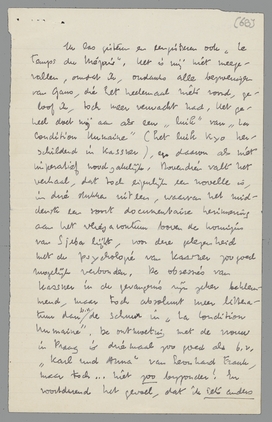 (680)
Ik las gisteren en eergisteren ook „Le
Temps du Mépris”. Het is mij niet meege-
vallen, omdat ik, ondanks alle beperkingen
van Gans, die het heelemaal niets vond, ge-
loof ik, toch meer verwacht had. Het ge-
heel doet mij aan als een „luik” van „La
Condition Humaine” (het luik Kyo her-
schilderd in Kassner), en daarom als niet
imperatief noodzakelijk. Bovendien valt het
verhaal, dat toch eigenlijk een novelle is,
in drie stukken uiteen, waarvan het mid-
denste een soort documentaire herinnering
aan het vliegavontuur boven de koningin
van Sjeba lijkt, voor deze gelegenheid
met de psychologie van Kassner zoo goed
mogelijk verbonden. De obsessies van
Kassner in de gevangenis zijn zeker beklem-
mend, maar toch absoluut meer littera-
tuur dan b.v. de scènes in „La Condition
Humaine”. De ontmoeting met de vrouw
in Praag is driemaal zoo goed als b.v.
„Karl und Anna” van Leonhard Frank,
maar toch... niet zoo bijzonder! Ik
voortdurend het gevoel, dat ik iets anders